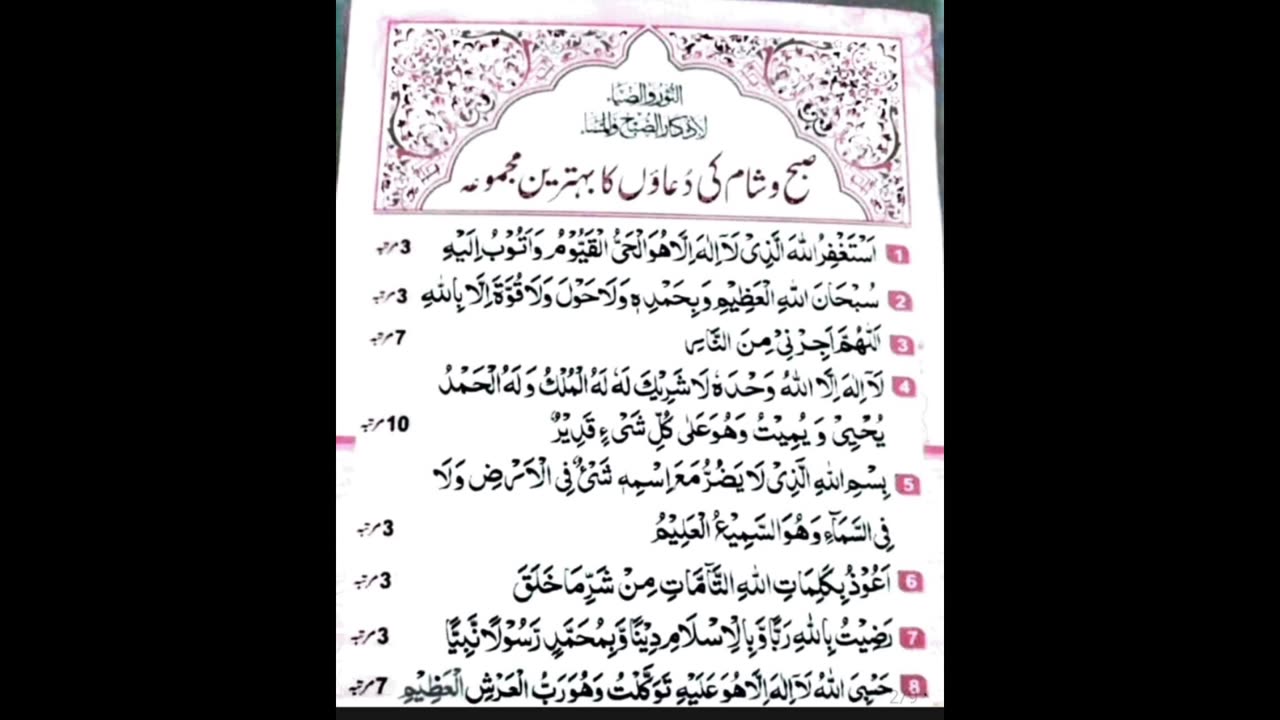 النُّورُ وَالضِّيَاء
لِاَذْكَارِ الصَّبَاحِ وَالْمَسَاء
صبح و شام کی دُعاؤں کا بہترین مجموعہ
1 اَسْتَغْفِرُ اللهَ الَّذِیْ لَآ اِلٰهَ اِلَّا هُوَ الْحَیُّ الْقَیُّوْمُ وَاَتُوْبُ اِلَیْهِ 3 مرتبہ
2 سُبْحَانَ اللهِ الْعَظِیْمِ وَبِحَمْدِهٖ وَلَا حَوْلَ وَلَا قُوَّةَ اِلَّا بِاللهِ 3 مرتبہ
3 اَللّٰهُمَّ اَجِرْنِیْ مِنَ النَّارِ 7 مرتبہ
4 لَآ اِلٰهَ اِلَّا اللهُ وَحْدَهٗ لَا شَرِیْكَ لَهٗ لَهُ الْمُلْكُ وَلَهُ الْحَمْدُ
یُحْیِیْ وَیُمِیْتُ وَهُوَ عَلٰی كُلِّ شَیْءٍ قَدِیْرٌ 10 مرتبہ
5 بِسْمِ اللهِ الَّذِیْ لَا یَضُرُّ مَعَ اِسْمِهٖ شَیْءٌ فِی الْاَرْضِ وَلَا
فِی السَّمَآءِ وَهُوَ السَّمِیْعُ الْعَلِیْمُ 3 مرتبہ
6 اَعُوْذُ بِكَلِمَاتِ اللهِ التَّآمَّاتِ مِنْ شَرِّ مَا خَلَقَ 3 مرتبہ
7 رَضِیْتُ بِاللهِ رَبًّا وَّبِالْاِسْلَامِ دِیْنًا وَّبِمُحَمَّدٍ رَّسُوْلًا نَّبِیًّا 3 مرتبہ
8 حَسْبِیَ اللهُ لَآ اِلٰهَ اِلَّا هُوَ عَلَیْهِ تَوَكَّلْتُ وَهُوَ رَبُّ الْعَرْشِ الْعَظِیْمِ 7 مرتبہ
2/9